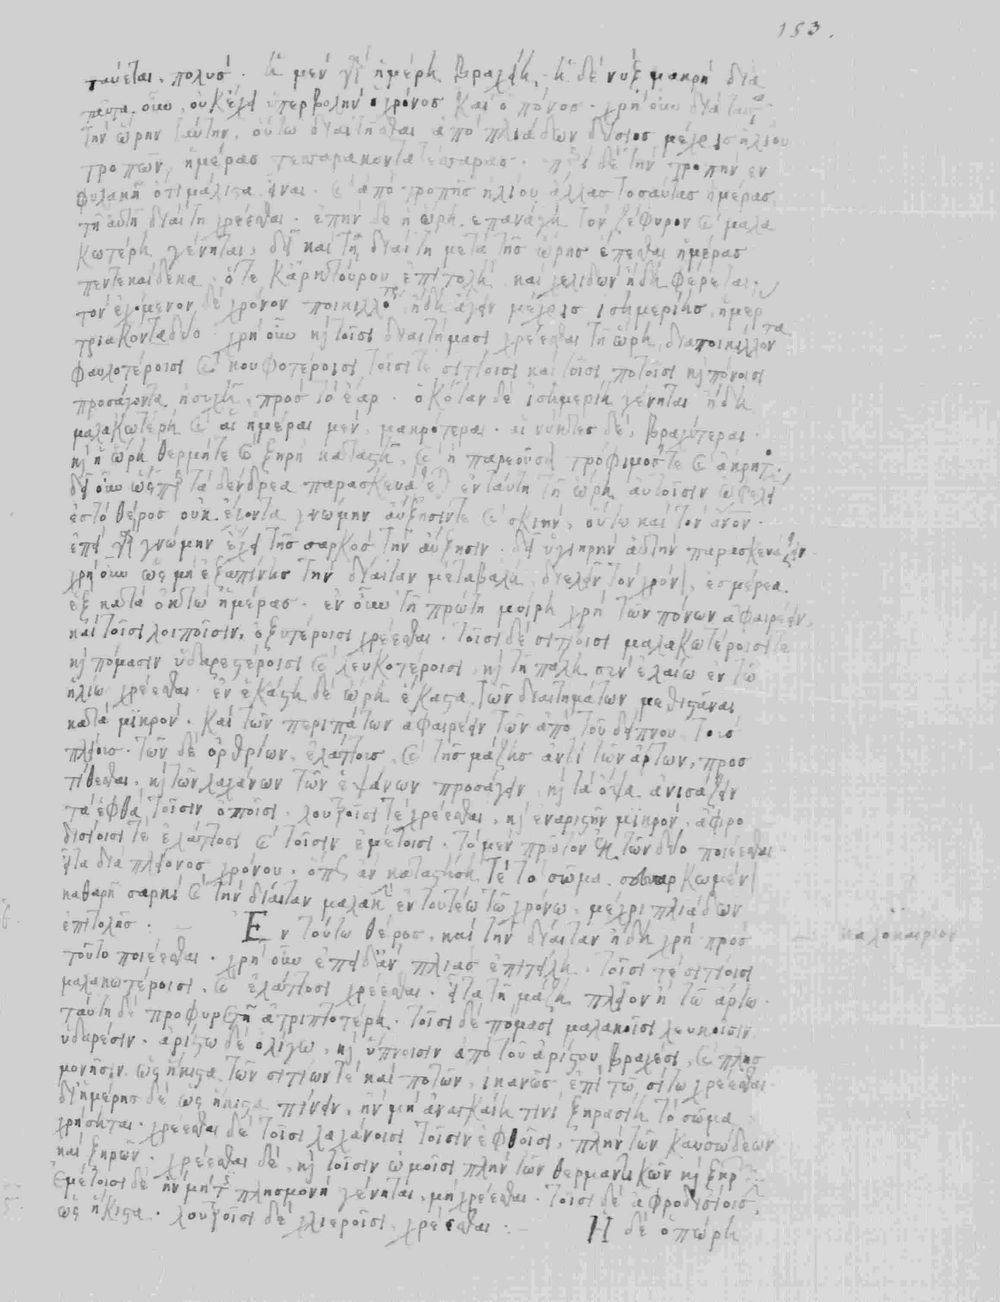 153.
ταύεται. πολυσ. ἡ μέν γὰρ ἡμέρη βραχείη. ἡ δέ νυξ μακρή διὰ
ταῦτα οὖν, οὐκ ἔχει ὑπερβολὴν ὁ χρόνοσ καὶ ὁ πόνοσ. χρή οὖν
τὴν ὥρην ταύτην, οὕτω διαιτῆσθαι ἀπό πλειάδων δύσιοσ μέχρισ ἡλίου
τροπῶν, ἡμέρασ τεσσαρακοντατέσσαρασ. περὶ δὲ τὴν τροπήν ἐν
φυλακῆ ὁτι μάλιστα εἶναι. καὶ ἀπό τροπῆσ ἡλίου ἄλλασ τοσαύτασ ἡμέρασ
τῆ αὐτῆ διαίτη χρέεσθαι. ἐπὴν δε ἡ ὥρη. ἐπανάγη τον ζέφυρον καὶ μαλα
κωτέρη γένηται, δεῖ καὶ τῆ διαίτη μετὰ τῆσ ὥρησ ἕπεσθαι ἡμέρασ
πεντεκαίδεκα. ὁτε καὶ ἀρκτούρου ἐπιτολή. και χελιδων ἤδη φέρεται.
τὸν ἐχόμενον δὲ χρόνον ποικιλλο ἤδη ἄγειν μέχρισ ἰσημερίησ, ἡμερ
τριακονταδύο. χρή οὖν καὶ τοῖσι διαιτήμασι χρέεσθαι τῆ ὥρη, διαποικίλλοντα
φαυλοτέροισι καὶ κουφοτέροισι τοῖσί τε σιτίοισι καὶ τοῖσι ποτοῖσι καὶ πόνοισι
προσάγοντα ἡσυχῆ, πρόσ τὸ ἐάρ. ὁκόταν δέ ἰσημερίη γένηται ἤδη
μαλακωτέρη καὶ αἱ ἡμέραι μέν, μακρότεραι. αἱ νύκτεσ δέ, βραχύτεραι.
καὶ ἡ ὥρη θερμήτε καὶ ξηρὴ καὶ ἡ παρεοῦσα τρόφιμοστε καὶ
δεῖ οὖν ὥσπερ τὰ δένδρεα παρασκευάζεται ἐν ταύτη τῆ ὥρη αὐτοῖσιν ὠφελ
ἐσ τό θέροσ οὐκ ἔχοντα γνώμην αὔξησιντε καὶ σκιήν, οὕτω καὶ τον
ἐπεὶ γὰρ γνώμην ἔχει τῆσ σαρκόσ την αὔξησιν. δεῖ ὑγιηρην αὐτὴν παρασκευάζειν.
χρή οὖν ὡσ μή ἐξαπίνησ την δίαιταν μεταβάλη, διελεῖν τον χρόν, ἐσ μέρεα
ἓξ κατά ὀκτώ ἡμέρασ. ἐν οὖν τῆ πρώτη μοίρη χρή τῶν πόνων ἀφαιρέειν
καὶ τοῖσι λοιποῖσιν, ὀξυτέροισι χρέεσθαι. τοῖσι δέ σιτίοισι μαλακωτέροισίτε
καὶ πόμασιν ὑδαρεστέροισι καὶ λευκοτέροισι, καὶ τῆ πάλη σὺν ἐλαίω ἐν τῶ
ἡλίω χρέεσθαι. ἐν ἑκάστη δέ ὥρη ἕκαστα τῶν διαιτημάτων μεθιστάναι
κατά μικρόν. καὶ τῶν περιπάτων ἀφαιρέειν τῶν ἀπό τοῦ δείπνου τουσ
πλείουσ. τῶν δέ ὀρθρίων, ἐλάττουσ. καὶ τῆσ μάζησ ἀντί τῶν ἄρτων, προσ
τίθεσθαι, καὶ τῶν λαχάνων τῶν ἑψάνων προσάγειν, καὶ τα ὄψα ἀνισάζειν
τὰ ἑφθά τοῖσιν ὀπτοῖσι. λουτροῖσί τε χρέεσθαι, καὶ ἐναριστῆν μικρόν, ἀφρο
δισίοισί τε ἐλάττοσι καὶ τοῖσιν ἐμέτοισι. τό μέν πρῶτον ἐκ τῶν δύο ποιέεσθαι
εἶτα διὰ πλέονοσ χρόνου. ὅπως ἄν καταστήση τέ τὸ σῶμα σεσαρκωμέν
καθαρῆ σαρκί καὶ τὴν δίαιταν μαλακὴν ἐν τουτέω τῶ χρόνω, μέχρι πλειάδων
ἐπιτολῆσ.
Ἐν τούτω θέροσ, καὶ τὴν δίαιταν ἤδη χρή πρόσ καλοκαιριου
τοῦτο ποιέεσθαι. χρή οὖν ἐπειδάν πλιασ ἐπιτείλη. τοῖσί τε σιτίοισι
μαλακωτέροισι, καὶ ἐλάττοσι χρέεσθαι. εἶτα τῆ μάζη πλεῖον ἢ τῶ ἄρτω.
ταύτη δέ προφυρητῆ ἀτριπτοτέρη. τοῖσι δέ πόμασι μαλακοῖσι λευκοῖσιν
ὑδαρέσιν. ἀρίστω δέ ὀλίγω, καὶ ὕπνοισιν ἀπό τοῦ ἀρίστου βραχέσι, καὶ πλησ
μονῆσιν ὡσ ἥκιστα τῶν σιτίων τέ καὶ ποτῶν, ἱκανῶσ ἐπί τῶ σίτω χρέεσθαι
διημέρησ δέ ὡσ ἥκιστα πίνειν, ἤν μή ἀναγκαίη τινί ξηρασίη τό σῶμα
χρήσηται. χρέεσθαι δέ τοῖσι λαχάνοισι τοῖσιν ἑφθοῖσι, πλὴν τῶν καυσωδέων
καὶ ξηρῶν. χρέεσθαι δέ, καὶ τοῖσιν ὠμοῖσι πλὴν τῶν θερμαντικῶν καὶ ξηρ
ἐμέτοισι δέ ἤν μή τισ πλησμονή γένηται, μή χρέεσθαι. τοῖσι δέ ἀφροδισίοισ
ὡσ ἥκιστα. λουτροῖσι δέ χλιεροῖσι χρέεσθαι: Η δέ ὀπώρη